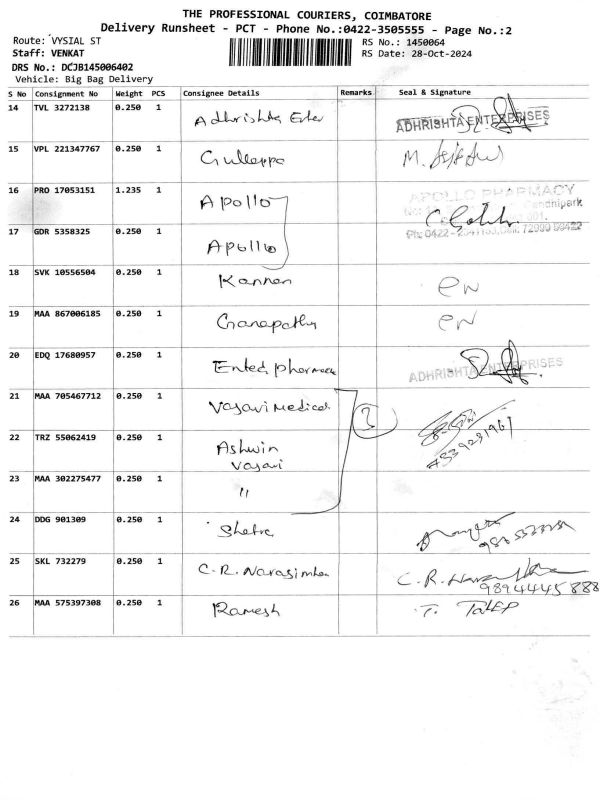 THE PROFESSIONAL COURIERS, COIMBATORE
Delivery Runsheet - PCT - Phone No.:0422-3505555 - Page No.:2
Route: VYSIAL ST RS No.: 1450064
Staff: VENKAT RS Date: 28-Oct-2024
DRS No.: DCJB145006402
Vehicle: Big Bag Delivery
S No Consignment No Weight PCS Consignee Details Remarks Seal & Signature
14 TVL 3272138 0.250 1 Adhrishta Enter ADHRISHTA ENTERPRISES
15 VPL 221347767 0.250 1 Gulleppa M.
16 PRO 17053151 1.235 1 Apollo APOLLO PHARMACY
Gandhipark
17 GDR 5358325 0.250 1 Apollo
18 SVK 10556504 0.250 1 Kannan
19 MAA 867006185 0.250 1 Ganapathy
20 EDQ 17680957 0.250 1 Ented pharmacie ADHRISHTA ENTERPRISES
21 MAA 705467712 0.250 1 Vasavi Medical 3
22 TRZ 55062419 0.250 1 Ashwin
Vasavi
23 MAA 302275477 0.250 1 "
24 DDG 901309 0.250 1
25 SKL 732279 0.250 1 C.R. Narasimhan C.R.
9894445888
26 MAA 575397308 0.250 1 Ramesh T.